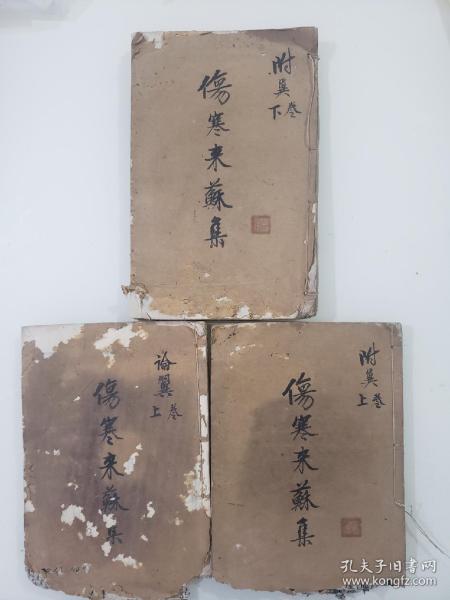 附翼
卷下
傷寒來蘇集
論翼
卷上
傷寒來蘇集
附翼
卷上
傷寒來蘇集
孔夫子旧书网
www.kongfz.com